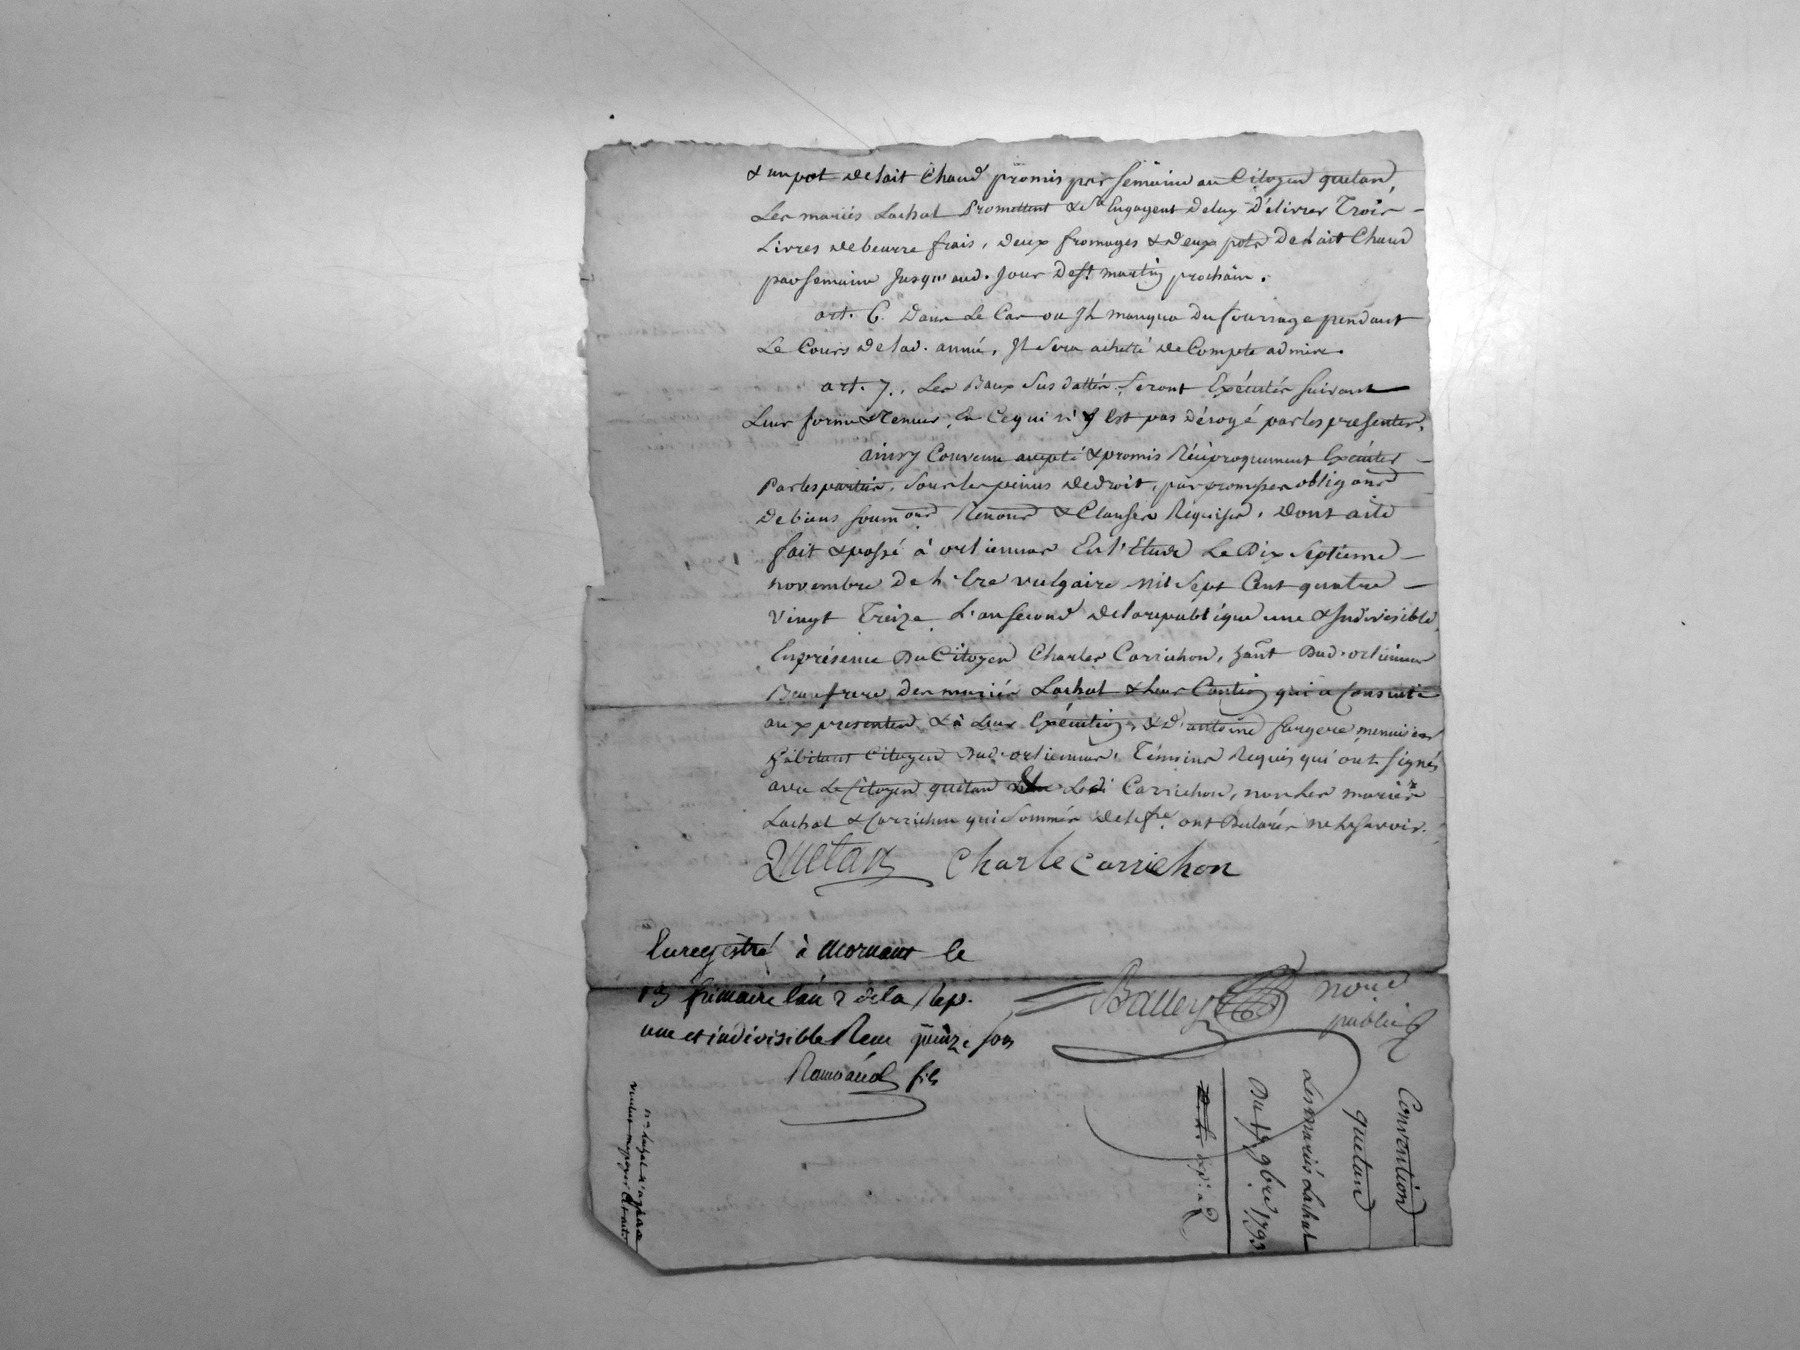 & un pot de lait Chaud promis par semaine au Citoyen quetand,
Les mariés Lachal Promettent & s'Engagent de luy Délivrer Trois
Livres de beurre frais, deux fromages & deux pots de Lait Chaud
par semaine Jusqu'aud. Jour de st. martin prochain.
art. 6. Dans Le Cas ou Jl manqua du fourrage pendant
Le Cours de lad. année, Jl sera achetté de Compte admire.
art. 7. Les Baux Sus dattés Seront Exécutés suivant
Leur forme & Teneur, En Ce qui n'y Est pas dérogé par les presentes,
ainsy Convenu accepté & promis Réciproquement Exécuter
Par les parties, sous les peines de droit, par promesses obligaons
de biens soumons Renons & Clauses Requises, dont acte
fait & passé à orlienas En l'Etude Le Dix Septieme
novembre de l'Ere vulgaire mil Sept Cent quatre
vingt Treize L'an second de la republique une & Indivisible,
En présence Du Citoyen Charles Carrichon, hant Dud. orlienas
Beaufrere des mariés Lachal & Leur Caution qui a Consenti
aux presentes & à Leur Exécution, & d'antoine fargere menuisier
habitant Citoyen Dud. orlienas, Témoins Requis qui ont signés
avec Le Citoyen quetand Led. Carrichon, non Les mariés
Lachal & Carrichon qui Sommés de le fre. ont Declarés ne Le savoir.
Quetan Charle carrichon
Enregistré à Mornant le
13 frimaire l'an 2 de la Rep.
une et indivisible Recu quinze sols
Rambaud fils
Balley nore
public
Convention
quetand
Les mariés Lachal
Du 17 9bre 1793